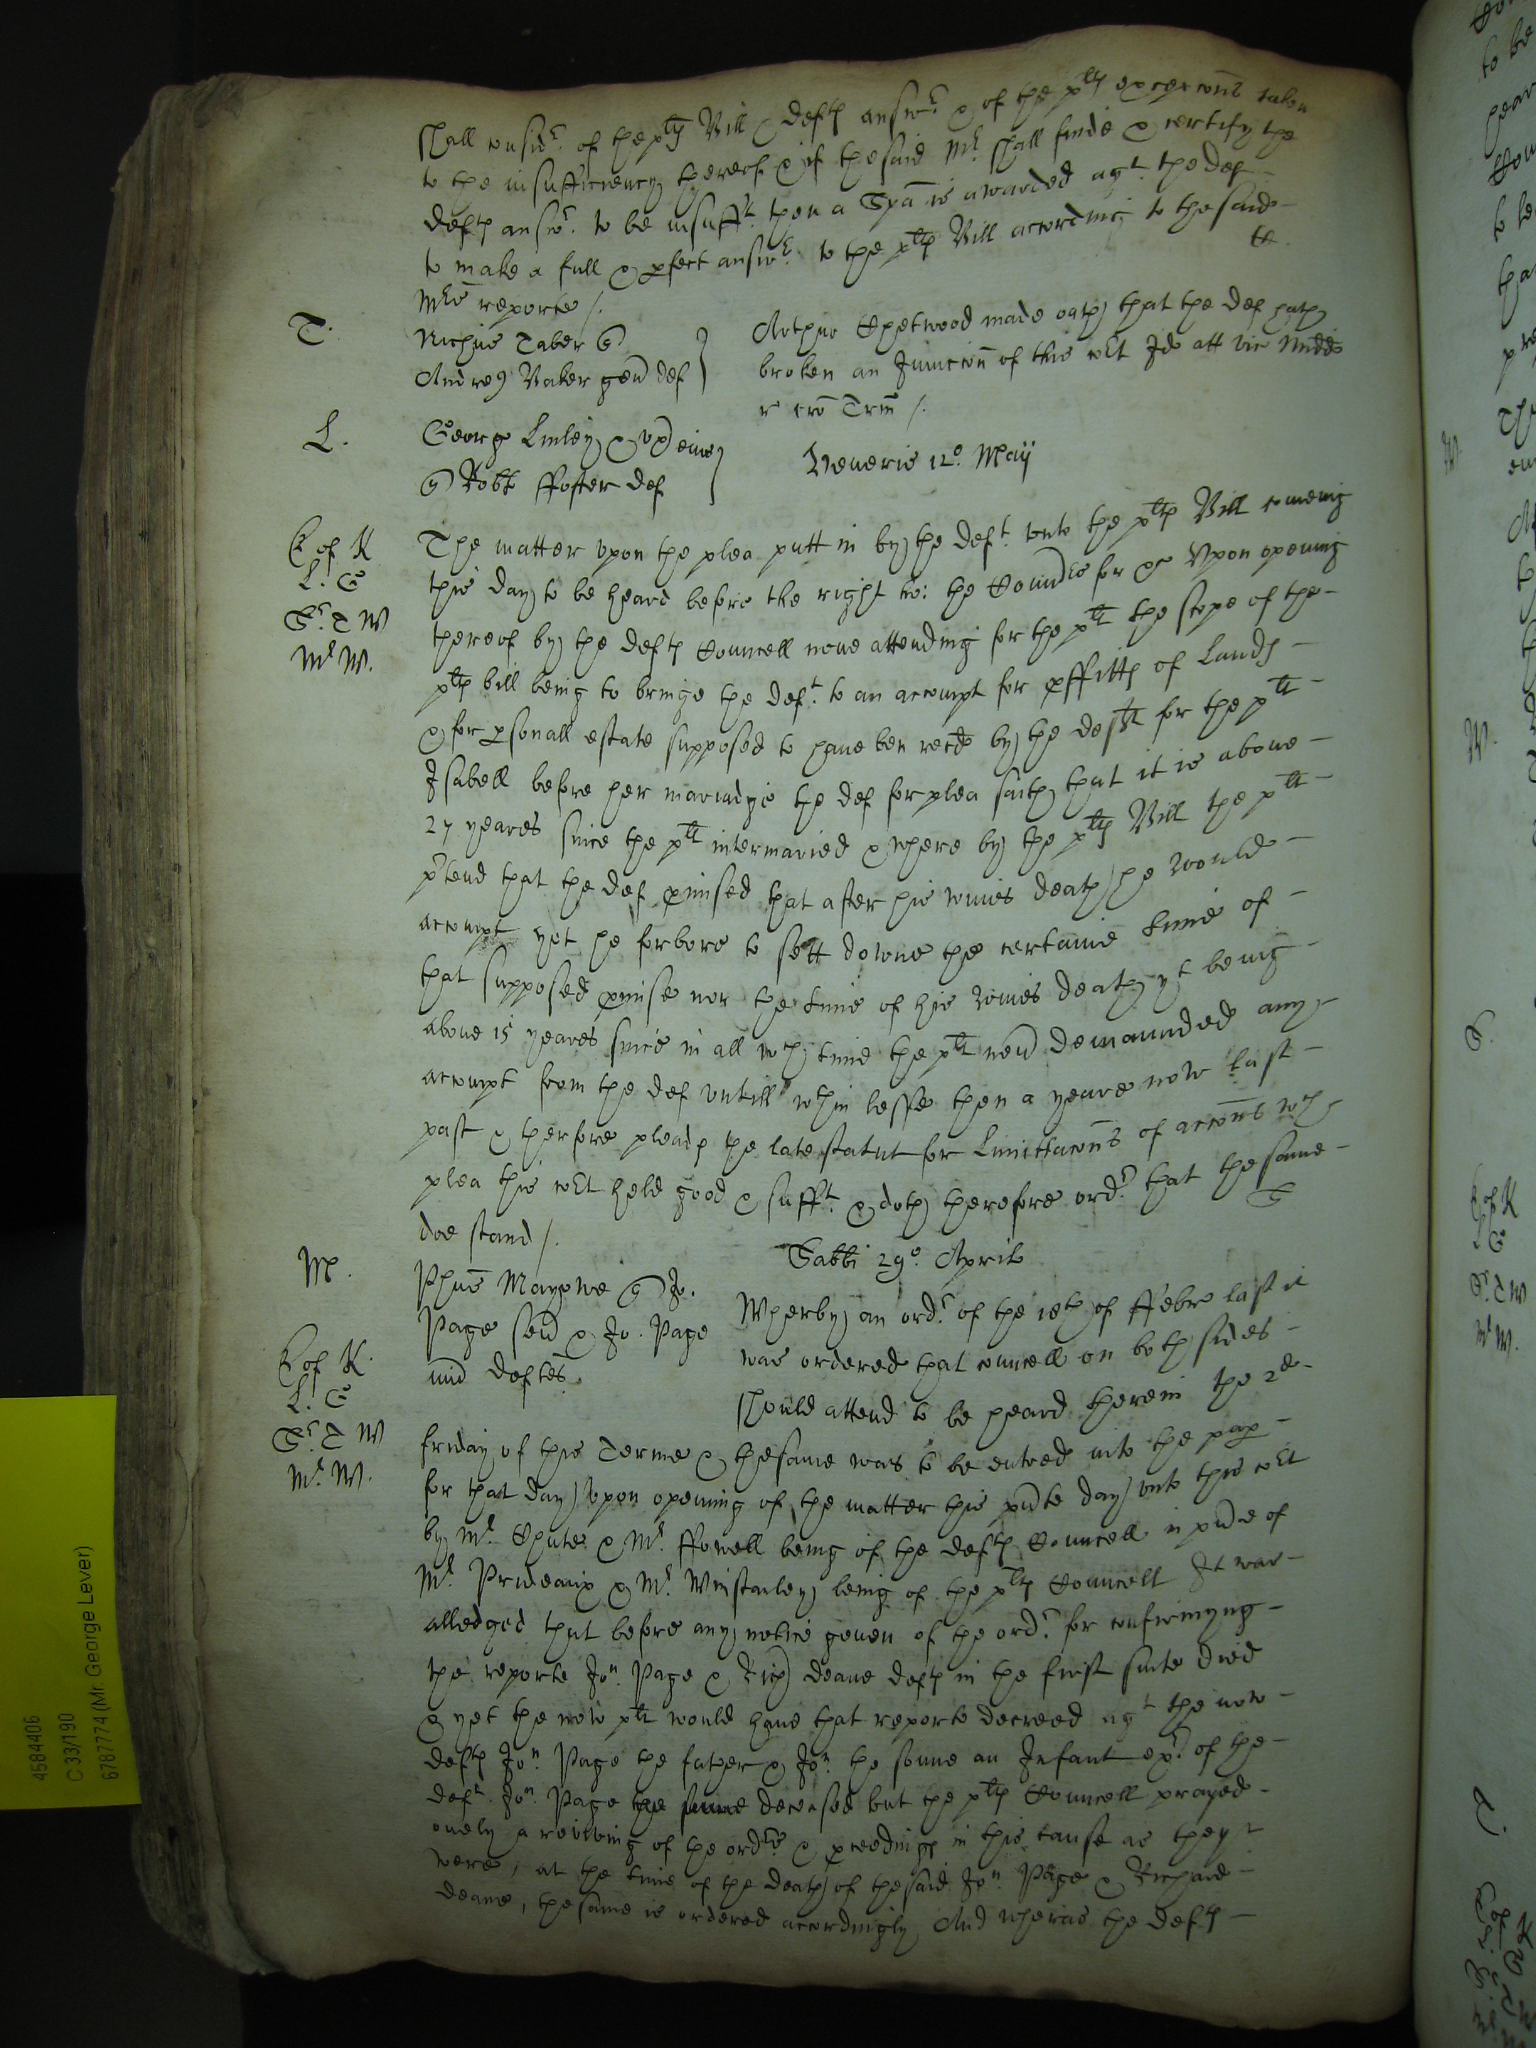 shall consider of the plts Bill & defts answr & of the plts excepcons taken
to the insufficiency thereof & if the said Mr shall finde & certify the
defts answr to be insufft then a Spa is awarded agt the def
to make a full & pfect answr to the plts Bill according to the said
Mrs reporte /.
T. Nichus Taber
Andreas Baker gen def
Arthus Spetwood made oath that the def hath
broken an Iniuncon of this cort Ide att vic Midds
r cro Trin /.
L. George Linley & ux eius
Robt ffoster def
Veneris 12o May
C of K
L. E
Sr. T W
Mr W.
The matter upon the plea putt in by the deft. unto the plts Bill comeing
this day to be heard before the right ho: the Comrs for &c Upon opening
thereof by the defts Councell none attending for the plt the scope of the
plts bill being to bringe the deft. to an accompt for pffitts of Lands
& for psonall estate supposed to haue ben recd by the deft for the plt
Isabell before her mariadge the def for plea saith that it is aboue
27 yeares since the plt intermaried & where by the plts Bill the plt
ptend that the def pmised that after his wives death he would
accompt yet he forbore to sett downe the certaine time of
that supposed pmise nor the time of his wives death yt being
aboue 15 yeares since in all wch time the plt nev demaunded any
accompt from the def untill wthin lesse then a yeare now last
past & therfore pleads the late statut for Limittacons of accons wch
plea this cort held good & sufft. & doth therefore ordr that the same
doe stand /.
Sabbi 29o Aprilis
M. Phus Mayowe Jo.
Page sen & Jo. Page
iun deftes.
C of K.
L. E
Sr. T W
Mr. W.
Wherby an ordr of the 18th of ffebr last it
was ordered that councell on both sides
should attend to be heard therein the 2d
friday of this Terme & the same was to be entred into the pap
for that day Upon opening of the matter this pnte day unto this cort
by Mr. Chute & Mr. ffowell being of the defts Councell in pnce of
Mr. Prideaux & Mr. Winstanley being of the plts Councell It was
alledged that before any notice geuen of the ordr. for confirmyng
the reporte Jon. Page & Rich Deane defts in the first suite died
& yet the now plt would haue that reporte decreed agt the now
defts Jon. Page the father & Jon. the sonne an Infant exr. of the
deft. Jon. Page the sonne deceased but the plts Councell prayed
onely a reviving of the ordrs & pceedings in this cause as they
were, at the time of the death of the said Jon. Page & Richard
Deane, the same is ordered accordingly And wheras the defts
4584406
C 33/190
6787774 (Mr. George Lever)